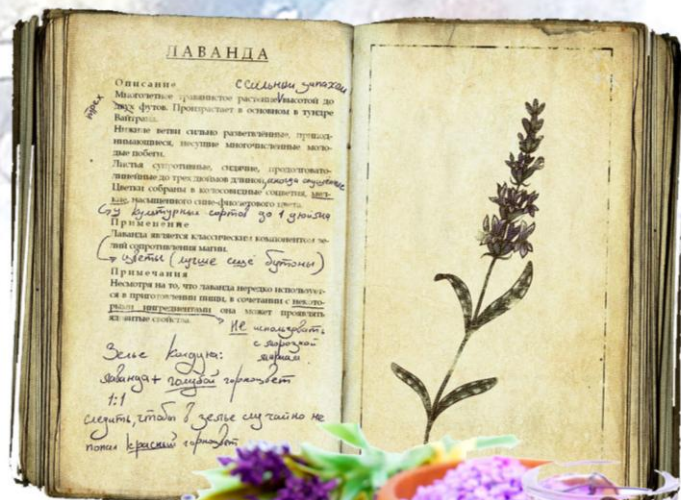 ЛАВАНДА
Описание
с сильным запахом
Многолетнее травянистое растение V высотой до
трех
двух футов. Произрастает в основном в тундре
Вайтрана.
Нижние ветви сильно разветвлённые, припод-
нимающиеся, несущие многочисленные моло-
дые побеги.
Листья супротивные, сидячие, продолговато-
линейные до трех дюймов длиной, иногда опушенные
Цветки собраны в колосовидные соцветия, мел-
кие, насыщенного сине-фиолетового цвета.
у культурных сортов до 1 дюйма
Применение
Лаванда является классическим компонентом зе-
лий сопротивления магии.
цветы (лучше ещё бутоны)
Примечания
Несмотря на то, что лаванда нередко использует-
ся в приготовлении пищи, в сочетании с некото-
рыми ингредиентами она может проявлять
ядовитые свойства.
Не использовать
с морозной
мориам
Зелье колдуна:
лаванда + голубой горноцвет
1:1
следить, чтобы в зелье случайно не
попал красный горноцвет